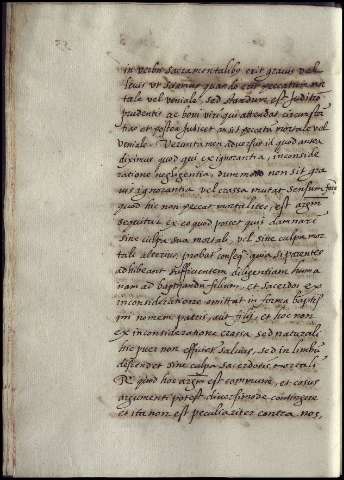 in verbis sacramentalibꝫ erit gravius vel
levius ut sciamus quando erit peccatum mor
tale vel veniale, sed standum est Juditio
prudentis ac boni viri qui attendat circunstan
tias et postea judicet an sit peccatū mortale vel
veniale. Verumtamen advertendum id quod antea
diximus quod qui ex ignorantia, inconside
ratione negligentia, dummodo non sit gra
vis ignorantia vel crassa mutat sensum
quod hic non peccat mortaliter, est argm̄
sequitur ex eo quod posset quis damnari
sine culpa sua mortali, vel sine culpa mor
tali alterius, probat conseq̄ quia si parentes
adhibeant sufficientem diligentiam huma
nam ad baptizandū filium, et sacerdos ex
inconsideratione omittat in forma baptis
mi nomem patris, aut filij, et hoc non
ex inconsideratione crassa sed naturali
hic puer non efficiet salvus, sed in limbū
descendet sine culpa sacerdotis mortali
R̄ quod hoc argm̄ est commune, et casus
argumenti potest diversimode contingere
et ita non est peculiariter contra nos,